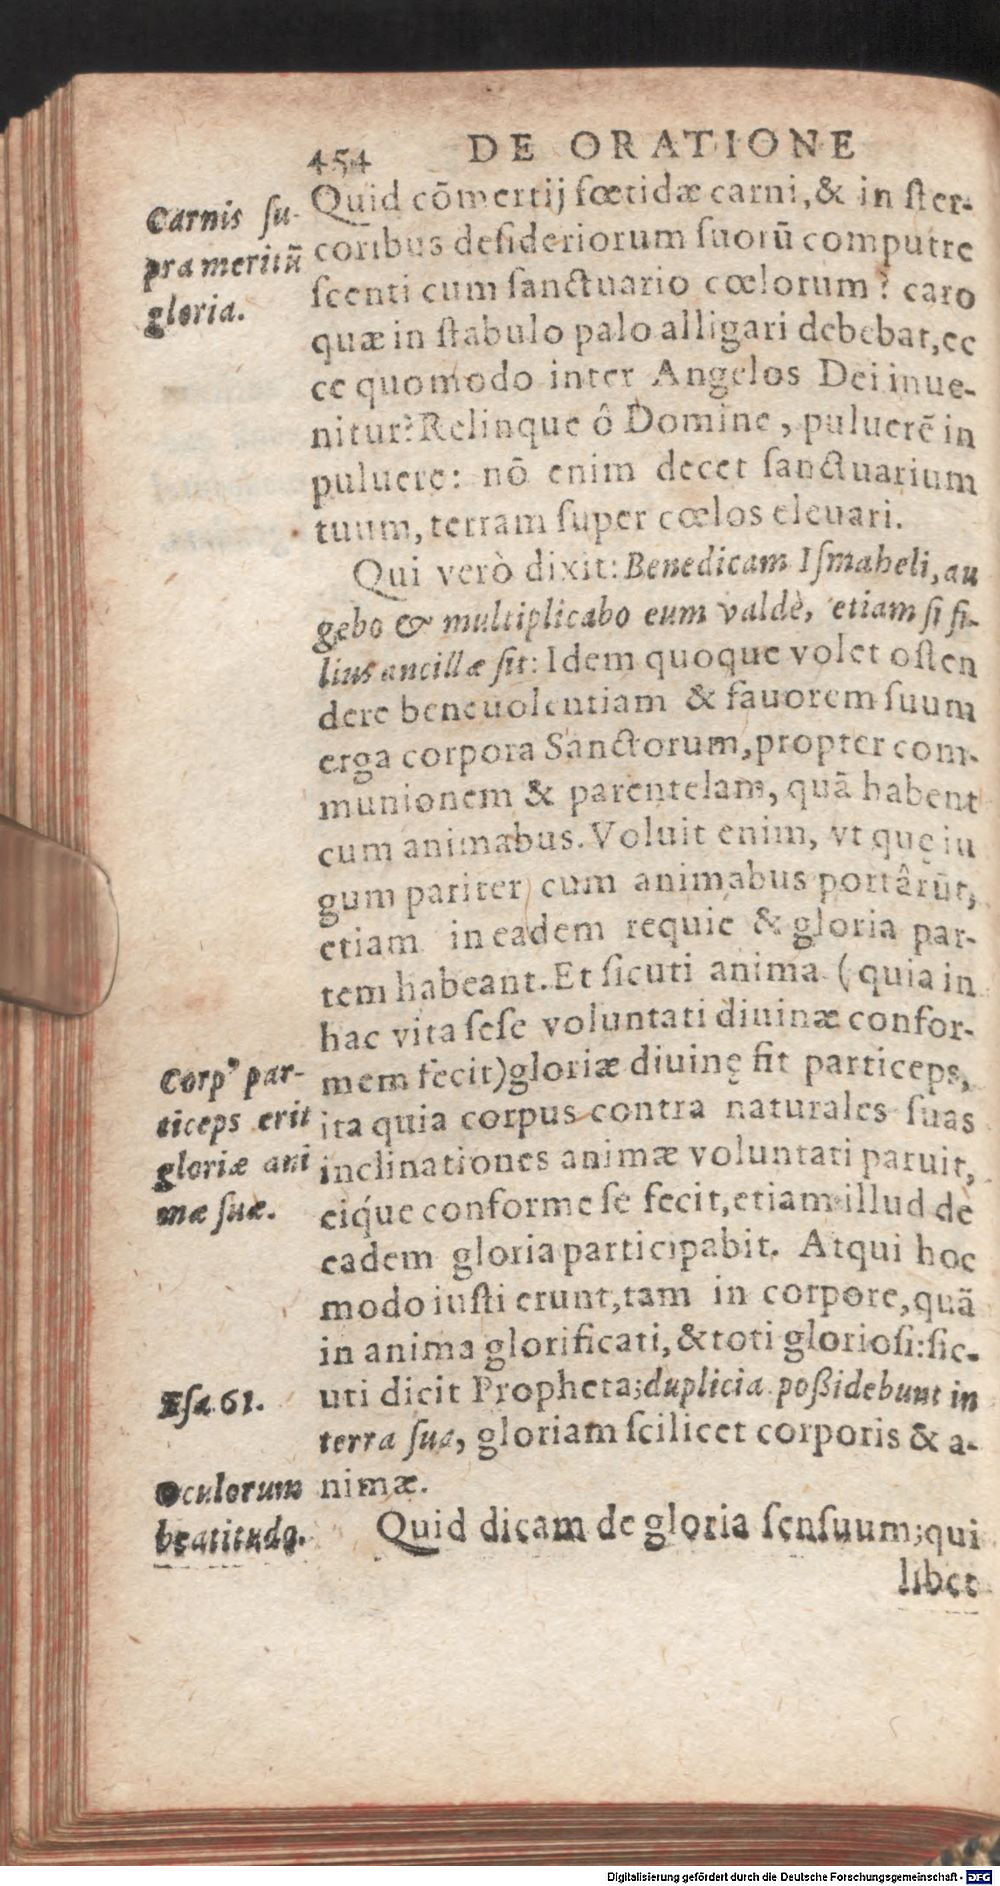 454 DE ORATIONE
Carnis ſu-
pra meritū
gloria.
Quid cōmertij fœtidæ carni, & in ſter-
coribus deſideriorum ſuorū computre
ſcenti cum ſanctuario cœlorum? caro
quæ in ſtabulo palo alligari debebat, ec
ce quomodo inter Angelos Dei inue-
nitur? Relinque ô Domine, puluerē in
puluere: nō enim decet ſanctuarium
tuum, terram ſuper cœlos eleuari.
Qui verò dixit: Benedicam Iſmaheli, au
gebo & multiplicabo eum valdè, etiam ſi fi-
lius ancillæ ſit: Idem quoque volet oſten
dere beneuolentiam & fauorem ſuum
erga corpora Sanctorum, propter com-
munionem & parentelam, quā habent
cum animabus. Voluit enim, vt quę iu
gum pariter cum animabus portârūt,
etiam in eadem requie & gloria par-
tem habeant. Et ſicuti anima (quia in
hac vita ſeſe voluntati diuinæ confor-
mem fecit) gloriæ diuinę fit particeps,
ita quia corpus contra naturales ſuas
inclinationes animæ voluntati paruit,
eiq́ue conforme ſe fecit, etiam illud de
eadem gloria participabit. Atqui hoc
modo iuſti erunt, tam in corpore, quā
in anima glorificati, & toti glorioſi: ſic-
uti dicit Propheta; duplicia poßidebunt in
terra ſua, gloriam ſcilicet corporis & a-
nimæ.
Corpꝰ par-
ticeps erit
gloriæ ani
mæ ſuæ.
Eſa. 61.
Oculorum
beatitudo.
Quid dicam de gloria ſenſuum; qui
libet
Digitalisierung gefördert durch die Deutsche Forschungsgemeinschaft - DFG